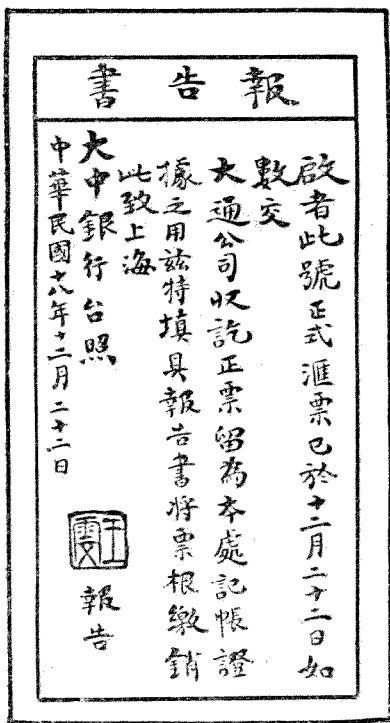 報告書
啟者此號正式滙票已於十二月二十二日如
數交
大通公司收訖正票留為本處記帳證
據之用茲特填具報告書將票根繳銷
此致上海
大中銀行台照
中華民國十八年十二月二十二日
報告